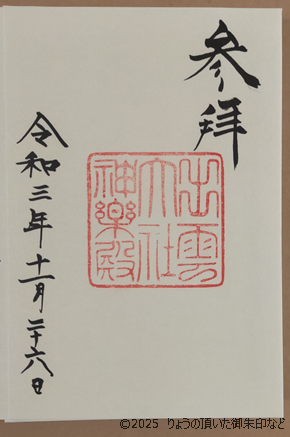 参拝
出雲
大社
神楽殿
令和三年十一月二十六日
©2025 りょうの頂いた御朱印など